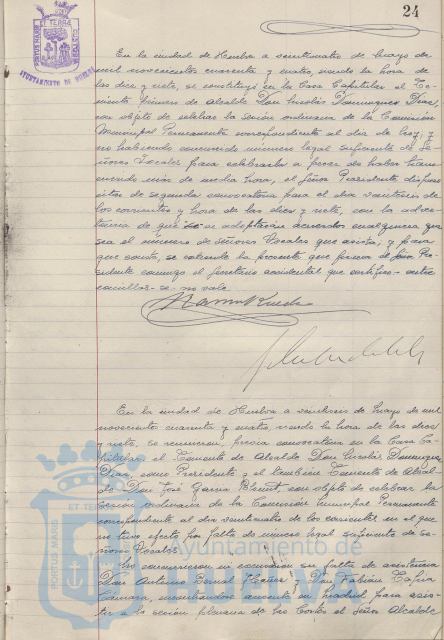 24
PORTUS MARIS ET TERRÆ CUSTODIA
AYUNTAMIENTO DE HUELVA
En la ciudad de Huelva a veinticuatro de Mayo de
mil novecientos cuarenta y cuatro, siendo la hora de
las diez y siete, se constituyó en la Casa Capitular el Te-
niente Primero de Alcalde Don Dominguez Diaz,
con objeto de celebrar la sesión ordinaria de la Comisión
Municipal Permanente correspondiente al dia de hoy; y
no habiendo concurrido número legal suficiente de Se-
ñores Vocales para celebrarla a pesar de haber trans-
currido más de media hora, el Señor Presidente dispuso
citar de segunda convocatoria para el dia veintiseis de
los corrientes y hora de las diez y siete, con la adver-
tencia de que se adoptarán acuerdos cualquiera que
sea el número de Señores Vocales que asista; y para
que conste, se extiende la presente que firma el Señor Pre-
sidente conmigo el Secretario accidental que certifico.- entre
comillas- se- no vale.
En la ciudad de Huelva a veintiseis de Mayo de mil
novecientos cuarenta y cuatro, siendo la hora de las diez
y siete, se reunieron, previa convocatoria en la Casa Ca-
pitular, el Teniente de Alcalde Don Dominguez
Diaz, como Presidente y el también Teniente de Alcal-
de Don José Garcia con objeto de celebrar la
sesión ordinaria de la Comisión Municipal Permanente
correspondiente al dia veinticuatro de los corrientes en el que
no tuvo efecto por falta de número legal suficiente de se-
ñores Vocales.
Ayuntamiento de
No concurrieron ni excusaron su falta de asistencia
Don Antonio y Don Fabián
encontrándose ausente en Madrid para asis-
tir a la sesión plenaria de las Cortes el Señor Alcalde